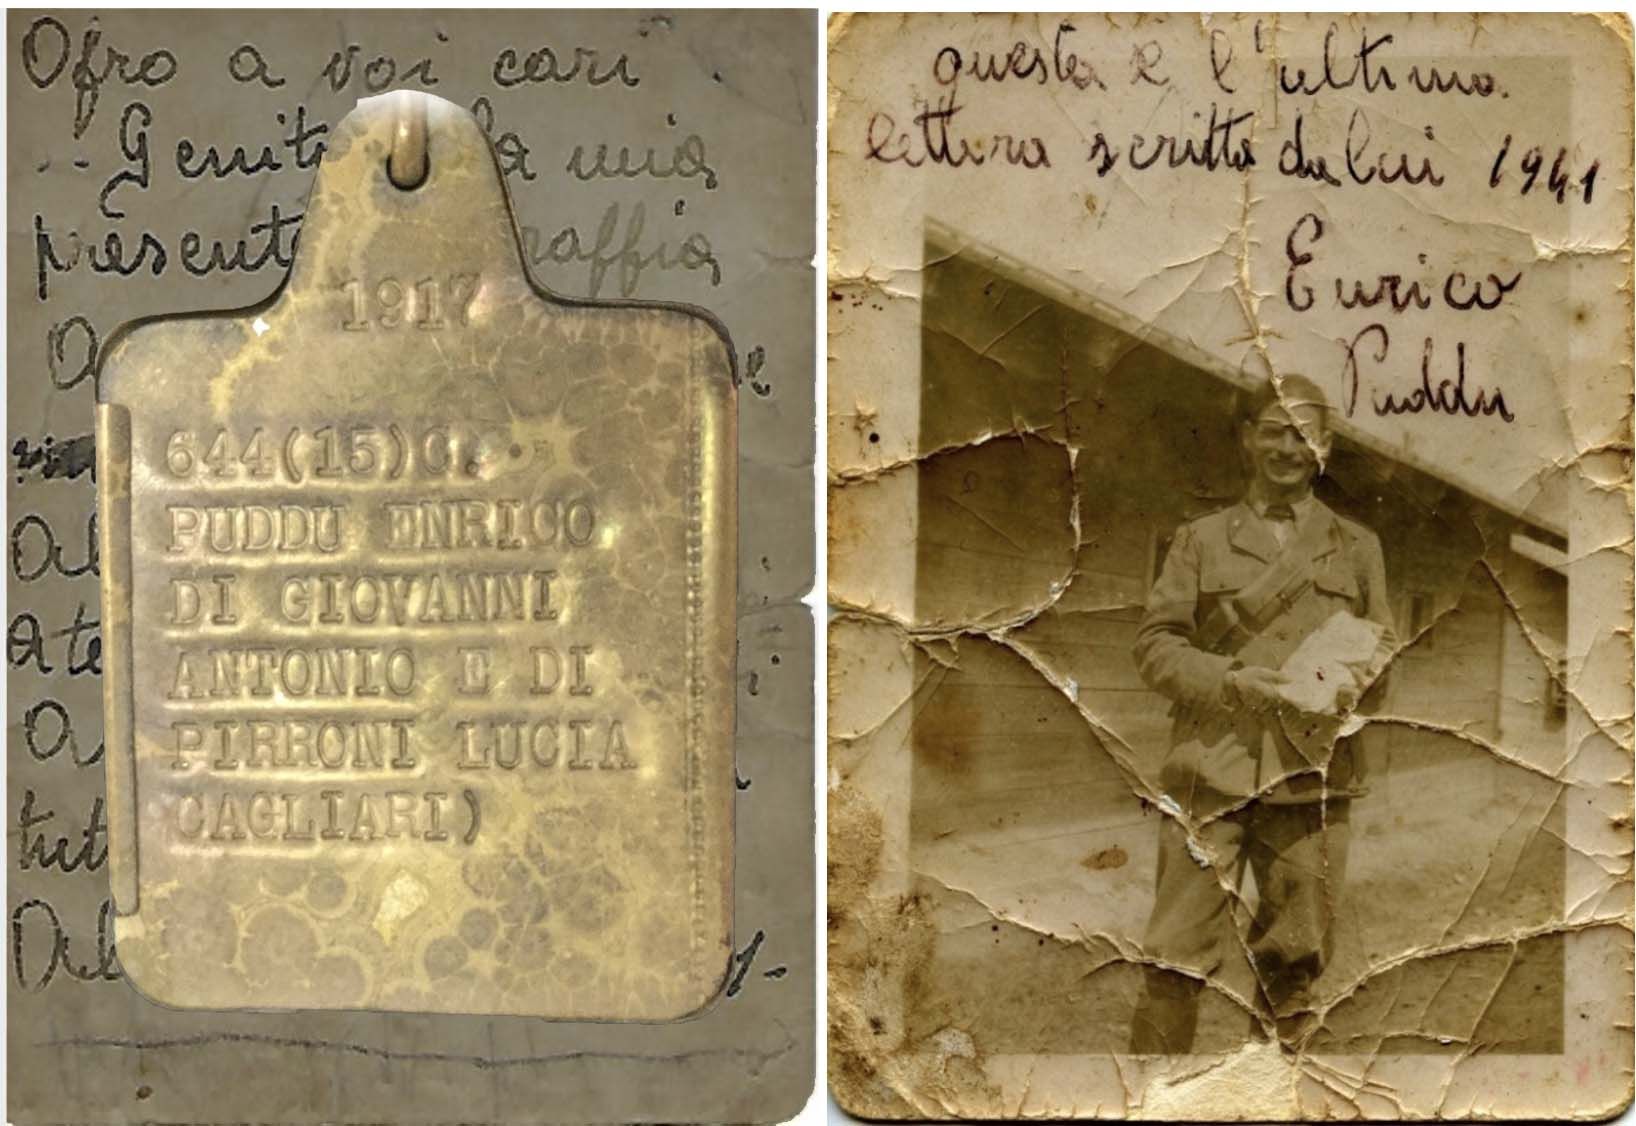 Ofro a voi cari
Genit la mia
present raffia
tut
1917
644(15)C.
PUDDU ENRICO
DI GIOVANNI
ANTONIO E DI
PIRRONI LUCIA
CAGLIARI)
questa e l'ultima
lettera scritta da lui 1941
Enrico
Puddu